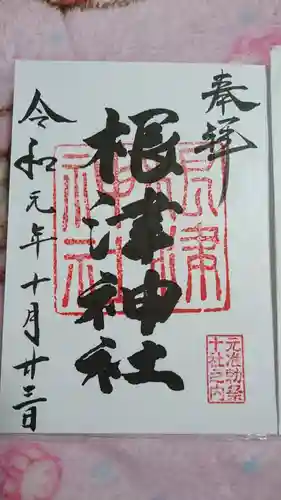 奉拝
根津神社
根津神社
元准勅祭
十社之内
令和元年十月廿三日